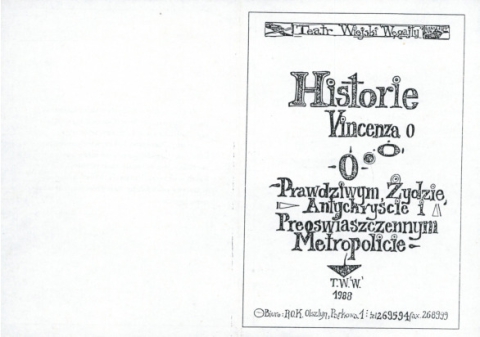 Teatr Wiejski Węgajty
Historie
Vincenza o
-O-
Prawdziwym Żydzie,
Antychryście i
Preoswiaszczennym
Metropolicie
T.W.W.
1988
Biuro: R.O.K. Olsztyn, Parkowa 1 tel 269594, fax. 268999